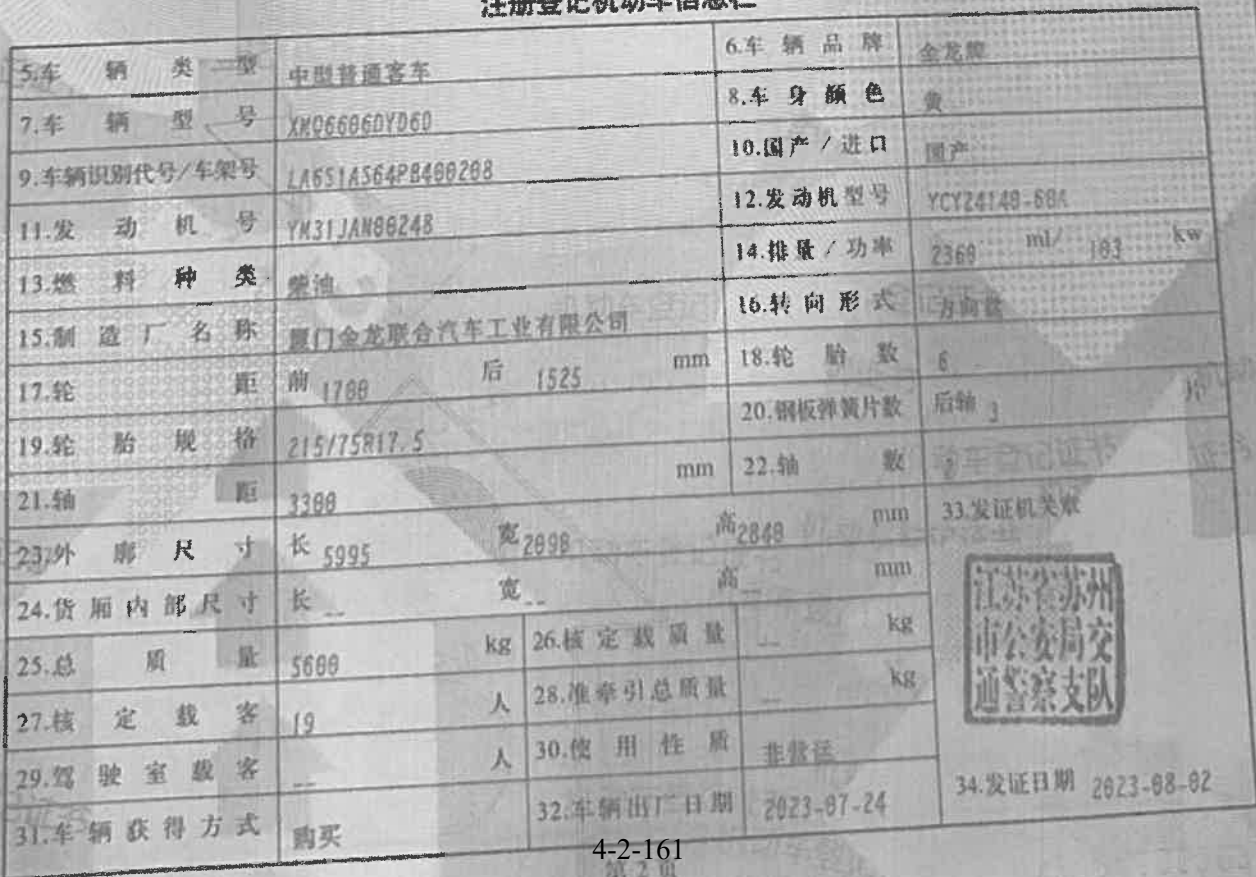 注册登记机动车信息栏
5.车辆类型 中型普通客车 6.车辆品牌 金龙牌
7.车辆型号 XMQ6606DYD6D 8.车身颜色 黄
9.车辆识别代号/车架号 LA6S1AS64PB400208 10.国产/进口 国产
11.发动机号 YM31JAN00248 12.发动机型号 YCY24140-60A
13.燃料种类 柴油 14.排量/功率 2360 ml/ 103 kw
15.制造厂名称 厦门金龙联合汽车工业有限公司 16.转向形式 方向盘
17.轮距 前 1700 后 1525 mm 18.轮胎数 6
19.轮胎规格 215/75R17.5 20.钢板弹簧片数 后轴 3 片
21.轴距 3300 mm 22.轴数 2
23.外廓尺寸 长 5995 宽 2090 高 2840 mm 33.发证机关章
24.货厢内部尺寸 长 -- 宽 -- 高 -- mm
江苏省苏州
市公安局交
通警察支队
25.总质量 5600 kg 26.核定载质量 -- kg
27.核定载客 19 人 28.准牵引总质量 -- kg
29.驾驶室载客 -- 人 30.使用性质 非营运
31.车辆获得方式 购买 32.车辆出厂日期 2023-07-24 34.发证日期 2023-08-02
4-2-161
第2页